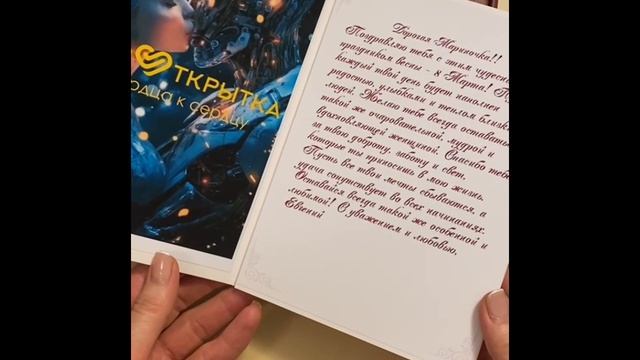 ТКРЫТКА
рдца к сердцу
Дорогая Мариночка!!
Поздравляю тебя с этим чудесн
праздником весны - 8 Марта!
каждый твой день будет наполнен
радостью, улыбками и теплом близк
людей. Желаю тебе всегда оставать
такой же очаровательной, мудрой и
вдохновляющей женщиной. Спасибо теб
за твою доброту, заботу и свет,
которые ты приносишь в мою жизнь.
Пусть все твои мечты сбываются, а
удача сопутствует во всех начинаниях.
Оставайся всегда такой же особенной и
любимой! С уважением и любовью,
Евгений